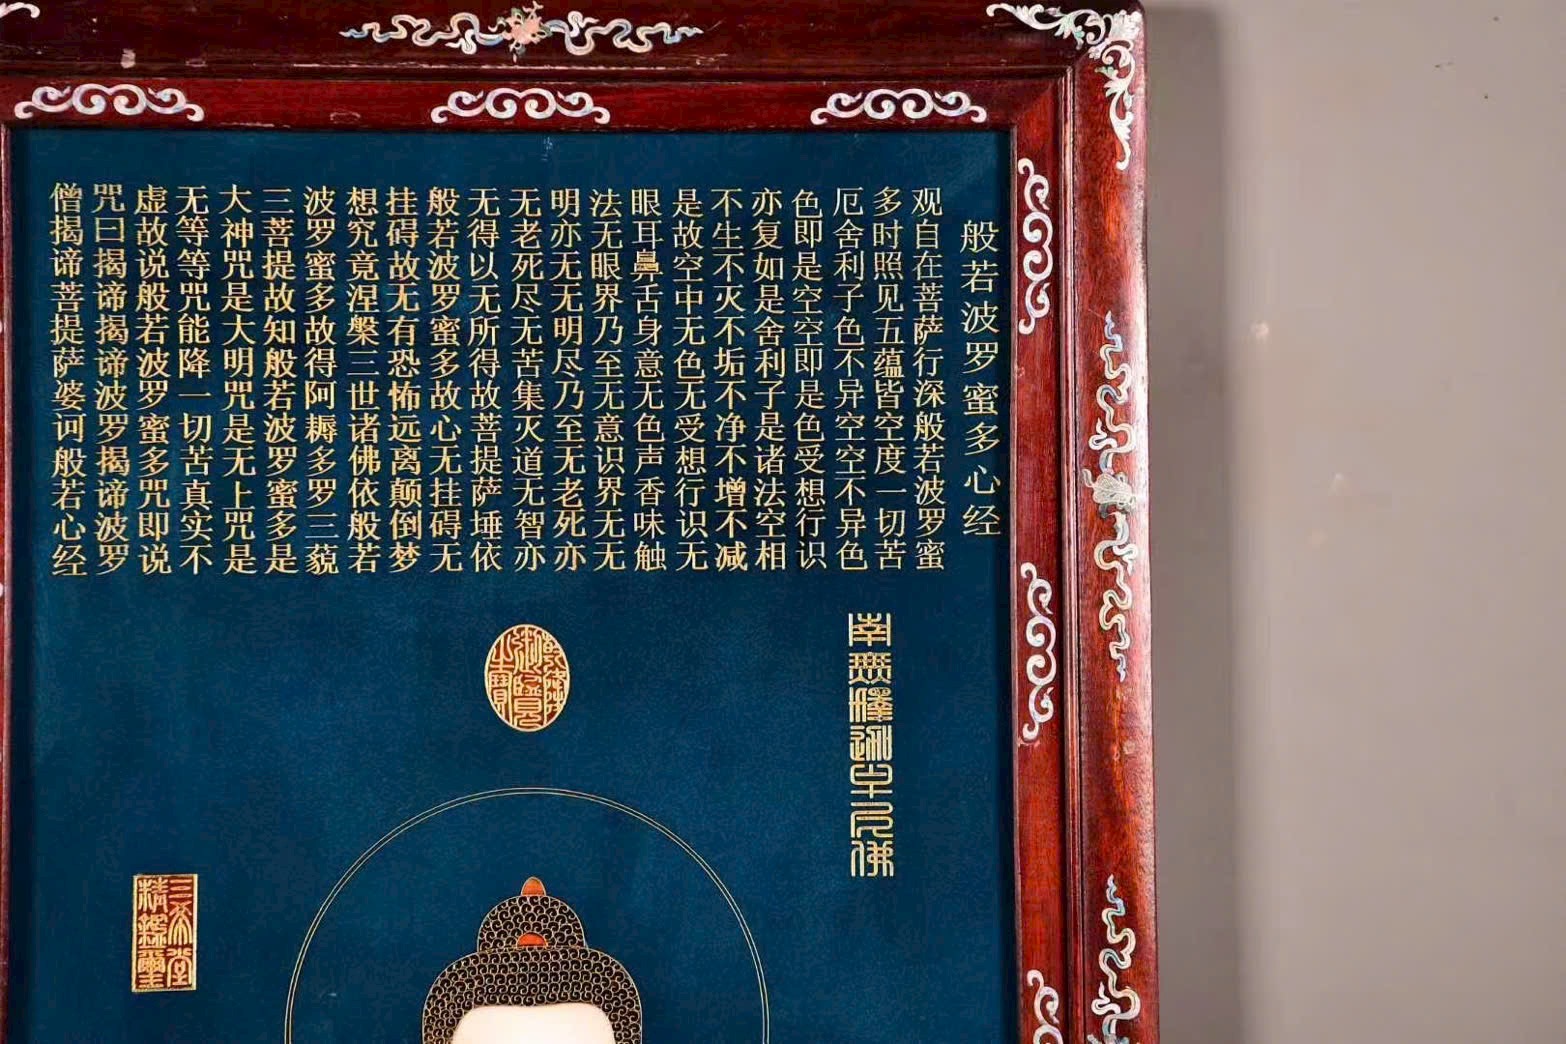 般若波罗蜜多心经
观自在菩萨行深般若波罗蜜
多时照见五蕴皆空度一切苦
厄舍利子色不异空空不异色
色即是空空即是色受想行识
亦复如是舍利子是诸法空相
不生不灭不垢不净不增不减
是故空中无色无受想行识无
眼耳鼻舌身意无色声香味触
法无眼界乃至无意识界无无
明亦无无明尽乃至无老死亦
无老死尽无苦集灭道无智亦
无得以无所得故菩提萨埵依
般若波罗蜜多故心无挂碍无
挂碍故无有恐怖远离颠倒梦
想究竟涅槃三世诸佛依般若
波罗蜜多故得阿耨多罗三藐
三菩提故知般若波罗蜜多是
大神咒是大明咒是无上咒是
无等等咒能降一切苦真实不
虚故说般若波罗蜜多咒即说
咒曰揭谛揭谛波罗揭谛波罗
僧揭谛菩提萨婆诃般若心经
南無釋迦牟尼佛
乾隆
御覽
之寶
三希堂
精鑑璽